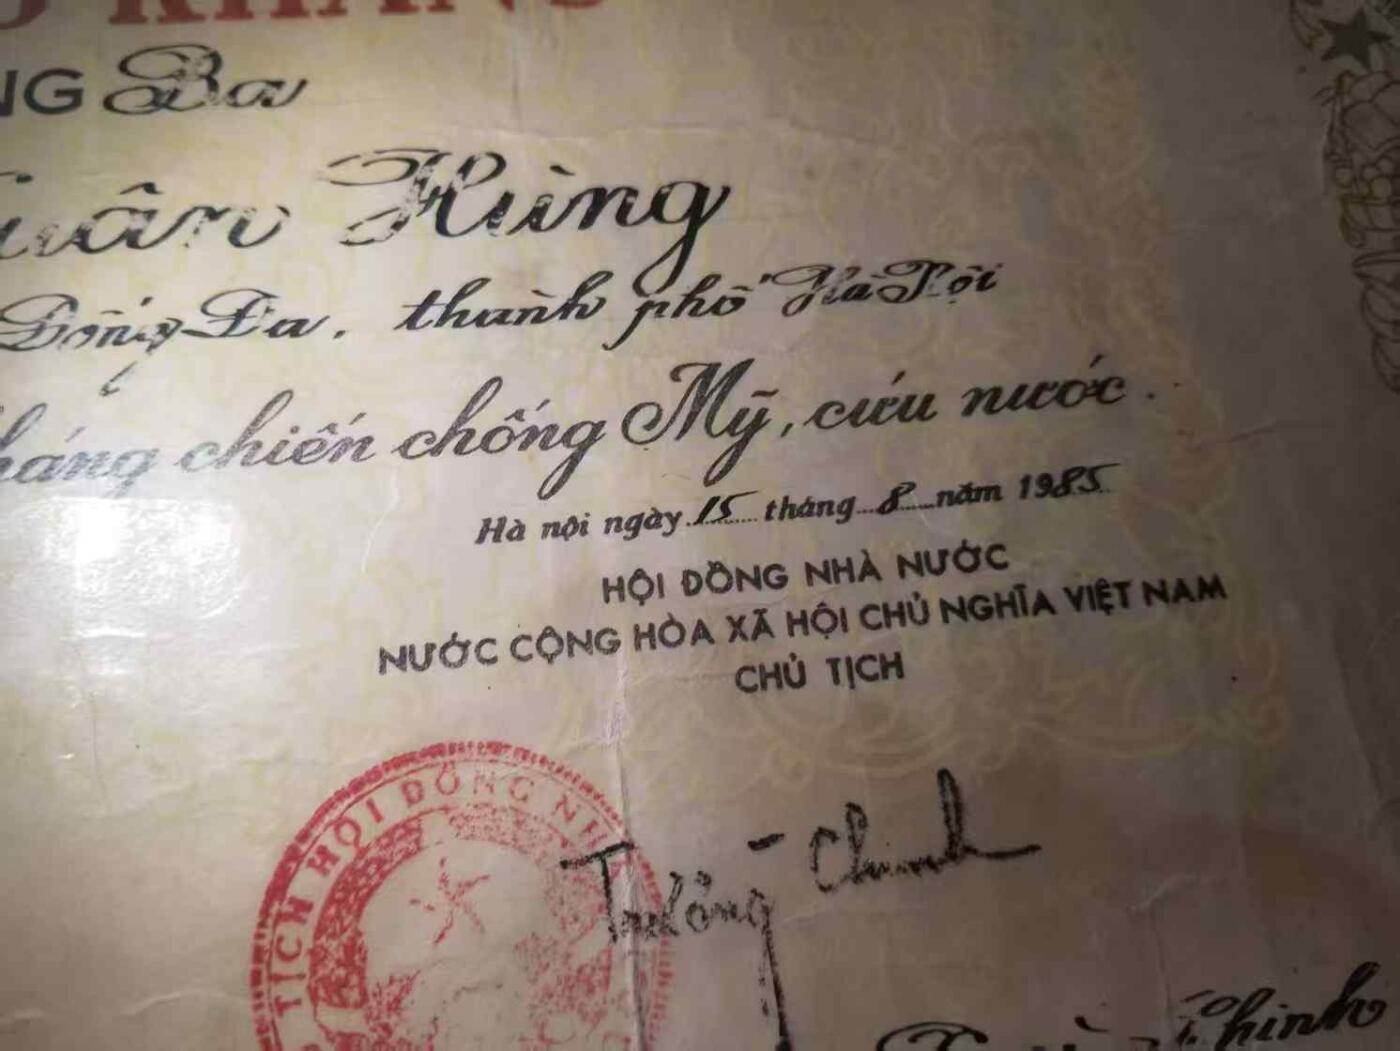 KHÁNG
NG Ba
uân Hùng
Đống Đa, thành phố Hà Nội
háng chiến chống Mỹ, cứu nước.
Hà nội ngày 15 tháng 8 năm 1985
HỘI ĐỒNG NHÀ NƯỚC
NƯỚC CỘNG HÒA XÃ HỘI CHỦ NGHĨA VIỆT NAM
CHỦ TỊCH
TỊCH HỘI ĐỒNG NH
Trường Chinh
Chinh